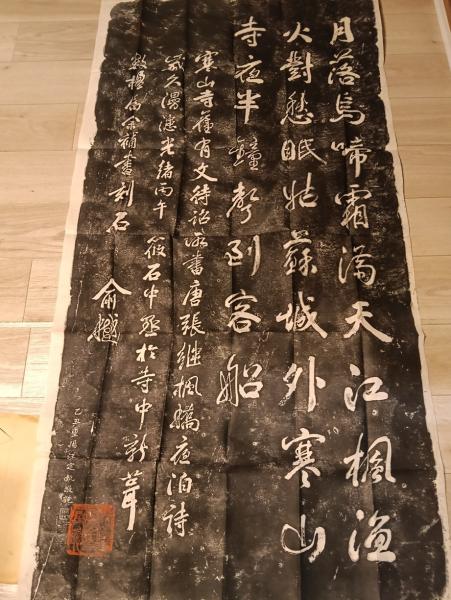 月落烏啼霜滿天江楓漁
火對愁眠姑蘇城外寒山
寺夜半鐘聲到客船
寒山寺舊有文待詔所書唐張繼楓橋夜泊詩
歲久漫漶光緒丙午筱石中丞於寺中新葺
數楹属余補書刻石 俞樾